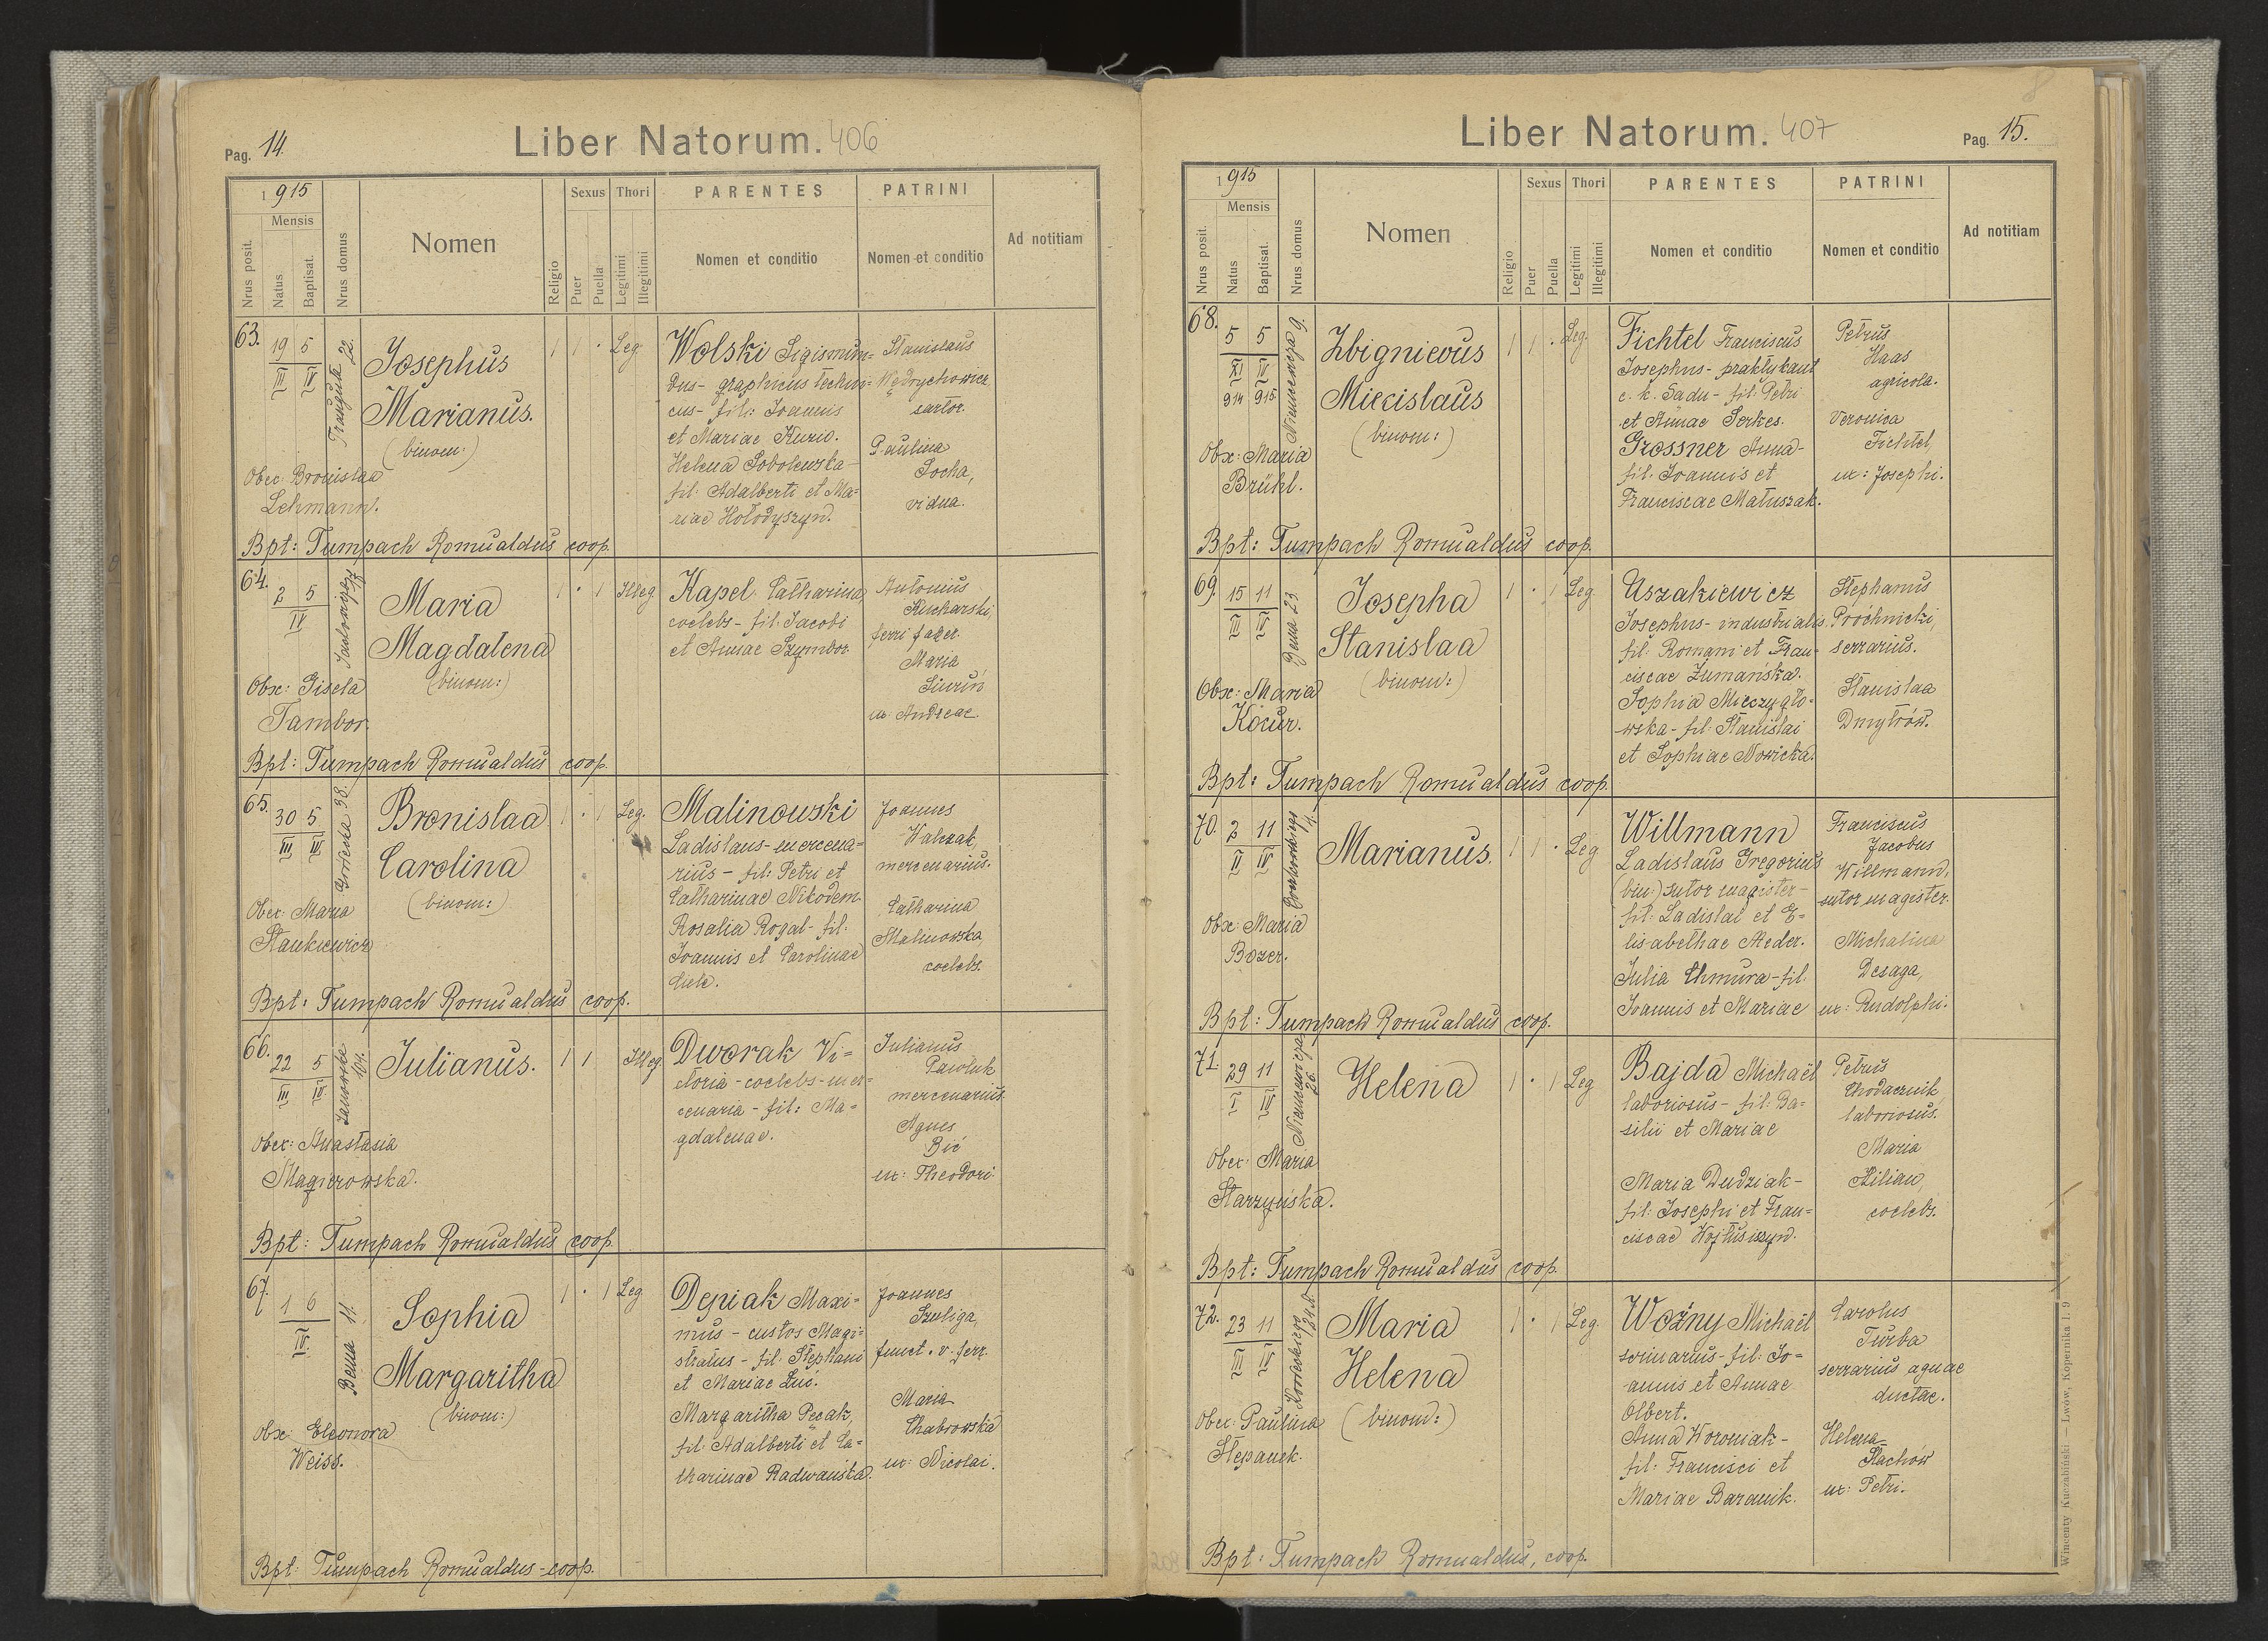 Pag. 14.
Liber Natorum. 406
1915
Mensis
Nrus posit.
Natus
Baptisat.
Nrus domus
Nomen
Religio
Sexus
Puer
Puella
Thori
Legitimi
Illegitimi
PARENTES
Nomen et conditio
PATRINI
Nomen et conditio
Ad notitiam
63.
19 5
III IV
Traugutta 22.
Josephus
Marianus.
(binom:)
1 1 · Leg.
Obex: Bronislaa
Lehmann.
Wolski Sigismun=
dus - graphicus techni=
cus - fil: Joannis
et Mariae Kurio.
Helena Sobolewska -
fil: Adalberti et Ma=
riae Hołodyszyn.
Stanislaus
Wędrychowicz
sartor.
Paulina
Socha,
vidua.
Bpt: Tumpach Romualdus coop.
64.
2 5
IV
Maria
Magdalena
(binom:)
1 · 1 Illeg
Obx: Gisela
Tambor.
Kapel Catharina,
coelebs - fil: Jacobi
et Annae Szymbor.
Antonius
Kucharski,
ferri faber.
Maria
ux: Andreae.
Bpt: Tumpach Romualdus coop.
65.
30 5
III IV
Gródecka 98.
Bronislaa
Carolina
(binom:)
1 · 1 Leg.
Obex: Maria
Stankiewicz
Malinowski
Ladislaus - mercena=
rius - fil: Petri et
Catharinae Nikodem.
Rosalia Rogal - fil:
Joannis et Carolinae
Joannes
Walczak,
mercenarius.
Catharina
Malinowska,
coelebs.
Bpt: Tumpach Romualdus coop.
66.
22 5
III IV
Janowska 104.
Julianus.
1 1 Illeg.
Obex: Anastasia
Magierowska.
Dworak Vi=
ctoria - coelebs - mer=
cenaria - fil: Ma=
gdalenae.
Julianus
Pawluk
mercenarius.
Agnes
Bić
ux: Theodori.
Bpt: Tumpach Romualdus coop.
67.
1 6
IV.
Bema 11.
Sophia
Margaritha
(binom:)
1 · 1 Leg
Obx: Eleonora
Weiss.
Depiak Maxi=
mus - custos Magi=
stratus - fil: Stephani
et Mariae Luć.
Margaritha Pęcak,
fil: Adalberti et Ca=
tharinae Radwańska.
Joannes
Szeliga,
funct. v. ferr.
Maria
Chabrowska
ux: Nicolai.
Bpt: Tumpach Romualdus - coop.
Liber Natorum. 407
Pag. 15.
8
1915
Mensis
Nrus posit.
Natus
Baptisat.
Nrus domus
Nomen
Religio
Sexus
Puer
Puella
Thori
Legitimi
Illegitimi
PARENTES
Nomen et conditio
PATRINI
Nomen et conditio
Ad notitiam
68.
5 5
XI IV
914 915
Niemcewicza 9.
Zbignievus
Miecislaus
(binom:)
1 1 · Leg.
Obx: Maria
Brühl.
Fichtel Franciscus
Josephus - praktykant
c. k. Sadu - fil: Petri
et Annae Serkes.
Grossner Anna -
fil: Joannis et
Franciscae Matuszak.
Petrus
Haas
agricola.
Veronica
Fichtel,
ux: Josephi.
Bpt: Tumpach Romualdus coop.
69.
15 11
III IV
Bema 23.
Josepha
Stanislaa
(binom:)
1 · 1 Leg
Obx: Maria
Kocur.
Uszakiewicz
Josephus - industrialis.
fil: Romani et Fran=
ciscae Zumańska.
Sophia Mieczygło=
wska - fil: Stanislai
et Sophiae Nowicka.
Stephanus
Próchnicki,
serrarius.
Stanislaa
Dmytrów.
Bpt: Tumpach Romualdus coop.
70.
2 11
II IV
Marianus.
1 1 · Leg
Obx: Maria
Bozer.
Willmann
Ladislaus Gregorius
(bin:) sutor magister -
fil: Ladislai et E=
lisabethae Meder.
Julia Chmura - fil:
Joannis et Mariae
Franciscus
Jacobus
Willmann,
sutor magister.
Michalina
Desaga,
ux: Rudolphi.
Bpt: Tumpach Romualdus coop.
71.
29 11
I IV
Niemcewicza 26.
Helena
1 · 1 Leg
Obex: Maria
Starzyńska.
Bajda Michaël
laboriosus - fil: Ba=
silii et Mariae
Maria Dudziak -
fil: Josephi et Fran=
ciscae Wojtusiszyn.
Petrus
Chodacznik,
laboriosus.
Maria
Kilian,
coelebs.
Bpt: Tumpach Romualdus coop.
72.
23 11
III IV
Maria
Helena
(binom:)
1 · 1 Leg.
Obex: Paulina
Stepanek.
Woźny Michaël
scrinarius - fil: Jo=
annis et Annae
Olbert.
Anna Woroniak -
fil: Francisci et
Mariae Baranik.
Carolus
Turba
serrarius aquae
ductae.
Helena
Stachów
ux: Petri.
Bpt: Tumpach Romualdus, coop.
Wincenty Kuczabiński — Lwów, Kopernika l. 9